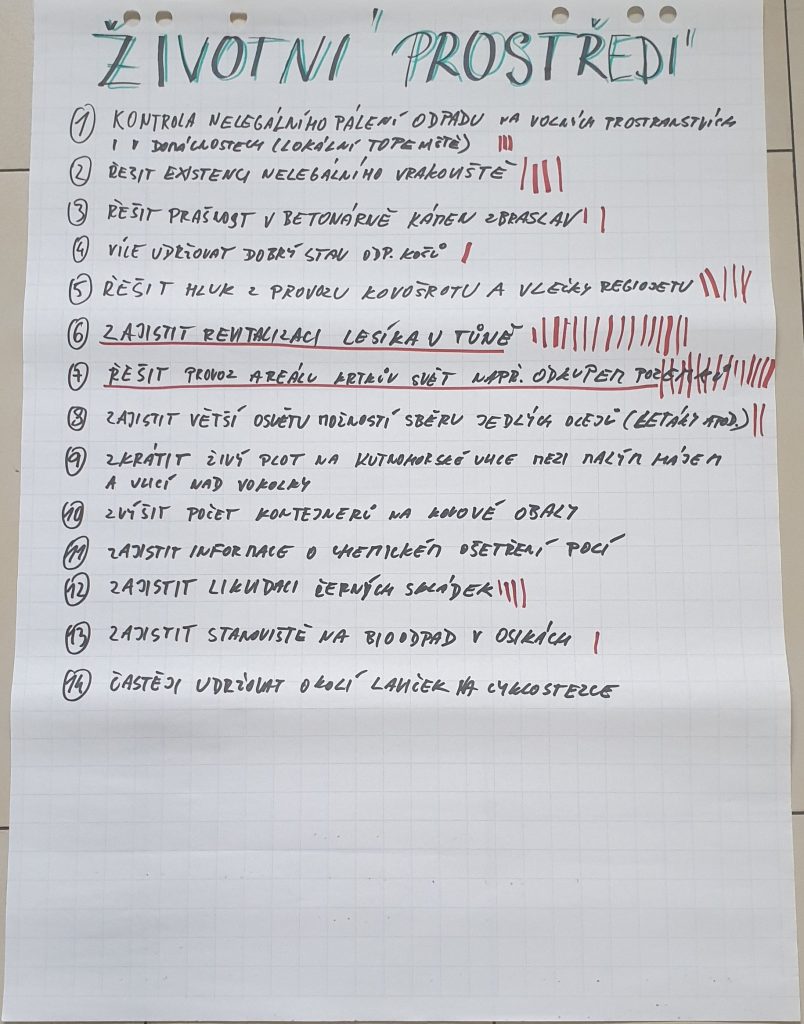 ŽIVOTNÍ PROSTŘEDÍ
1 KONTROLA NELEGÁLNÍHO PÁLENÍ ODPADU NA VOLNÝCH PROSTRANSTVÍCH
I V DOMÁCNOSTECH (LOKÁLNÍ TOPENIŠTĚ)
2 ŘEŠIT EXISTENCI NELEGÁLNÍHO VRAKOVIŠTĚ
3 ŘEŠIT PRAŠNOST V BETONÁRNĚ KÁMEN ZBRASLAV
4 VÍCE UDRŽOVAT DOBRÝ STAV ODP. KOŠŮ
5 ŘEŠIT HLUK Z PROVOZU KOVOŠROTU A VLEČKY REGIOJETU
6 ZAJISTIT REVITALIZACI LESÍKA U TŮNĚ
7 ŘEŠIT PROVOZ AREÁLU KRTKŮV SVĚT NAPŘ. ODKUPEM
8 ZAJISTIT VĚTŠÍ OSVĚTU MOŽNOSTÍ SBĚRU JEDLÝCH OLEJŮ (LETÁKY APOD.)
9 ZKRÁTIT ŽIVÝ PLOT NA KUTNOHORSKÉ ULICE MEZI MALÝM HÁJEM
A ULICÍ NAD VOKOLKY
10 ZVÝŠIT POČET KONTEJNERŮ NA KOVOVÉ OBALY
11 ZAJISTIT INFORMACE O CHEMICKÉM OŠETŘENÍ POLÍ
12 ZAJISTIT LIKVIDACI ČERNÝCH SKLÁDEK
13 ZAJISTIT STANOVIŠTĚ NA BIOODPAD V OSIKÁCH
14 ČASTĚJI UDRŽOVAT OKOLÍ LAVIČEK NA CYKLOSTEZCE